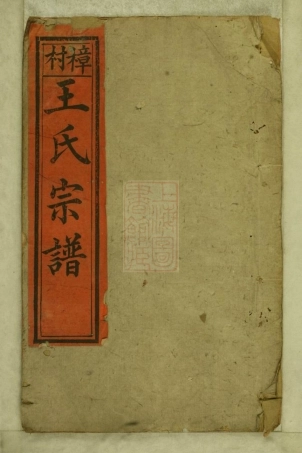 樟村
王氏宗譜
上海圖書館藏